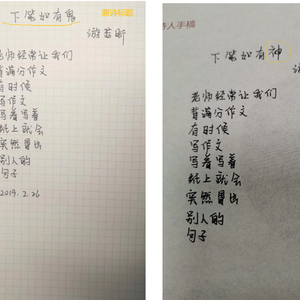 下笔如有鬼
游若昕
老师经常让我们
背满分作文
有时候
写作文
写着写着
纸上就会
突然冒出
别人的
句子
2019.2.26
诗人手稿
下笔如有神
游
老师经常让我们
背满分作文
有时候
写作文
写着写着
纸上就会
突然冒出
别人的
句子